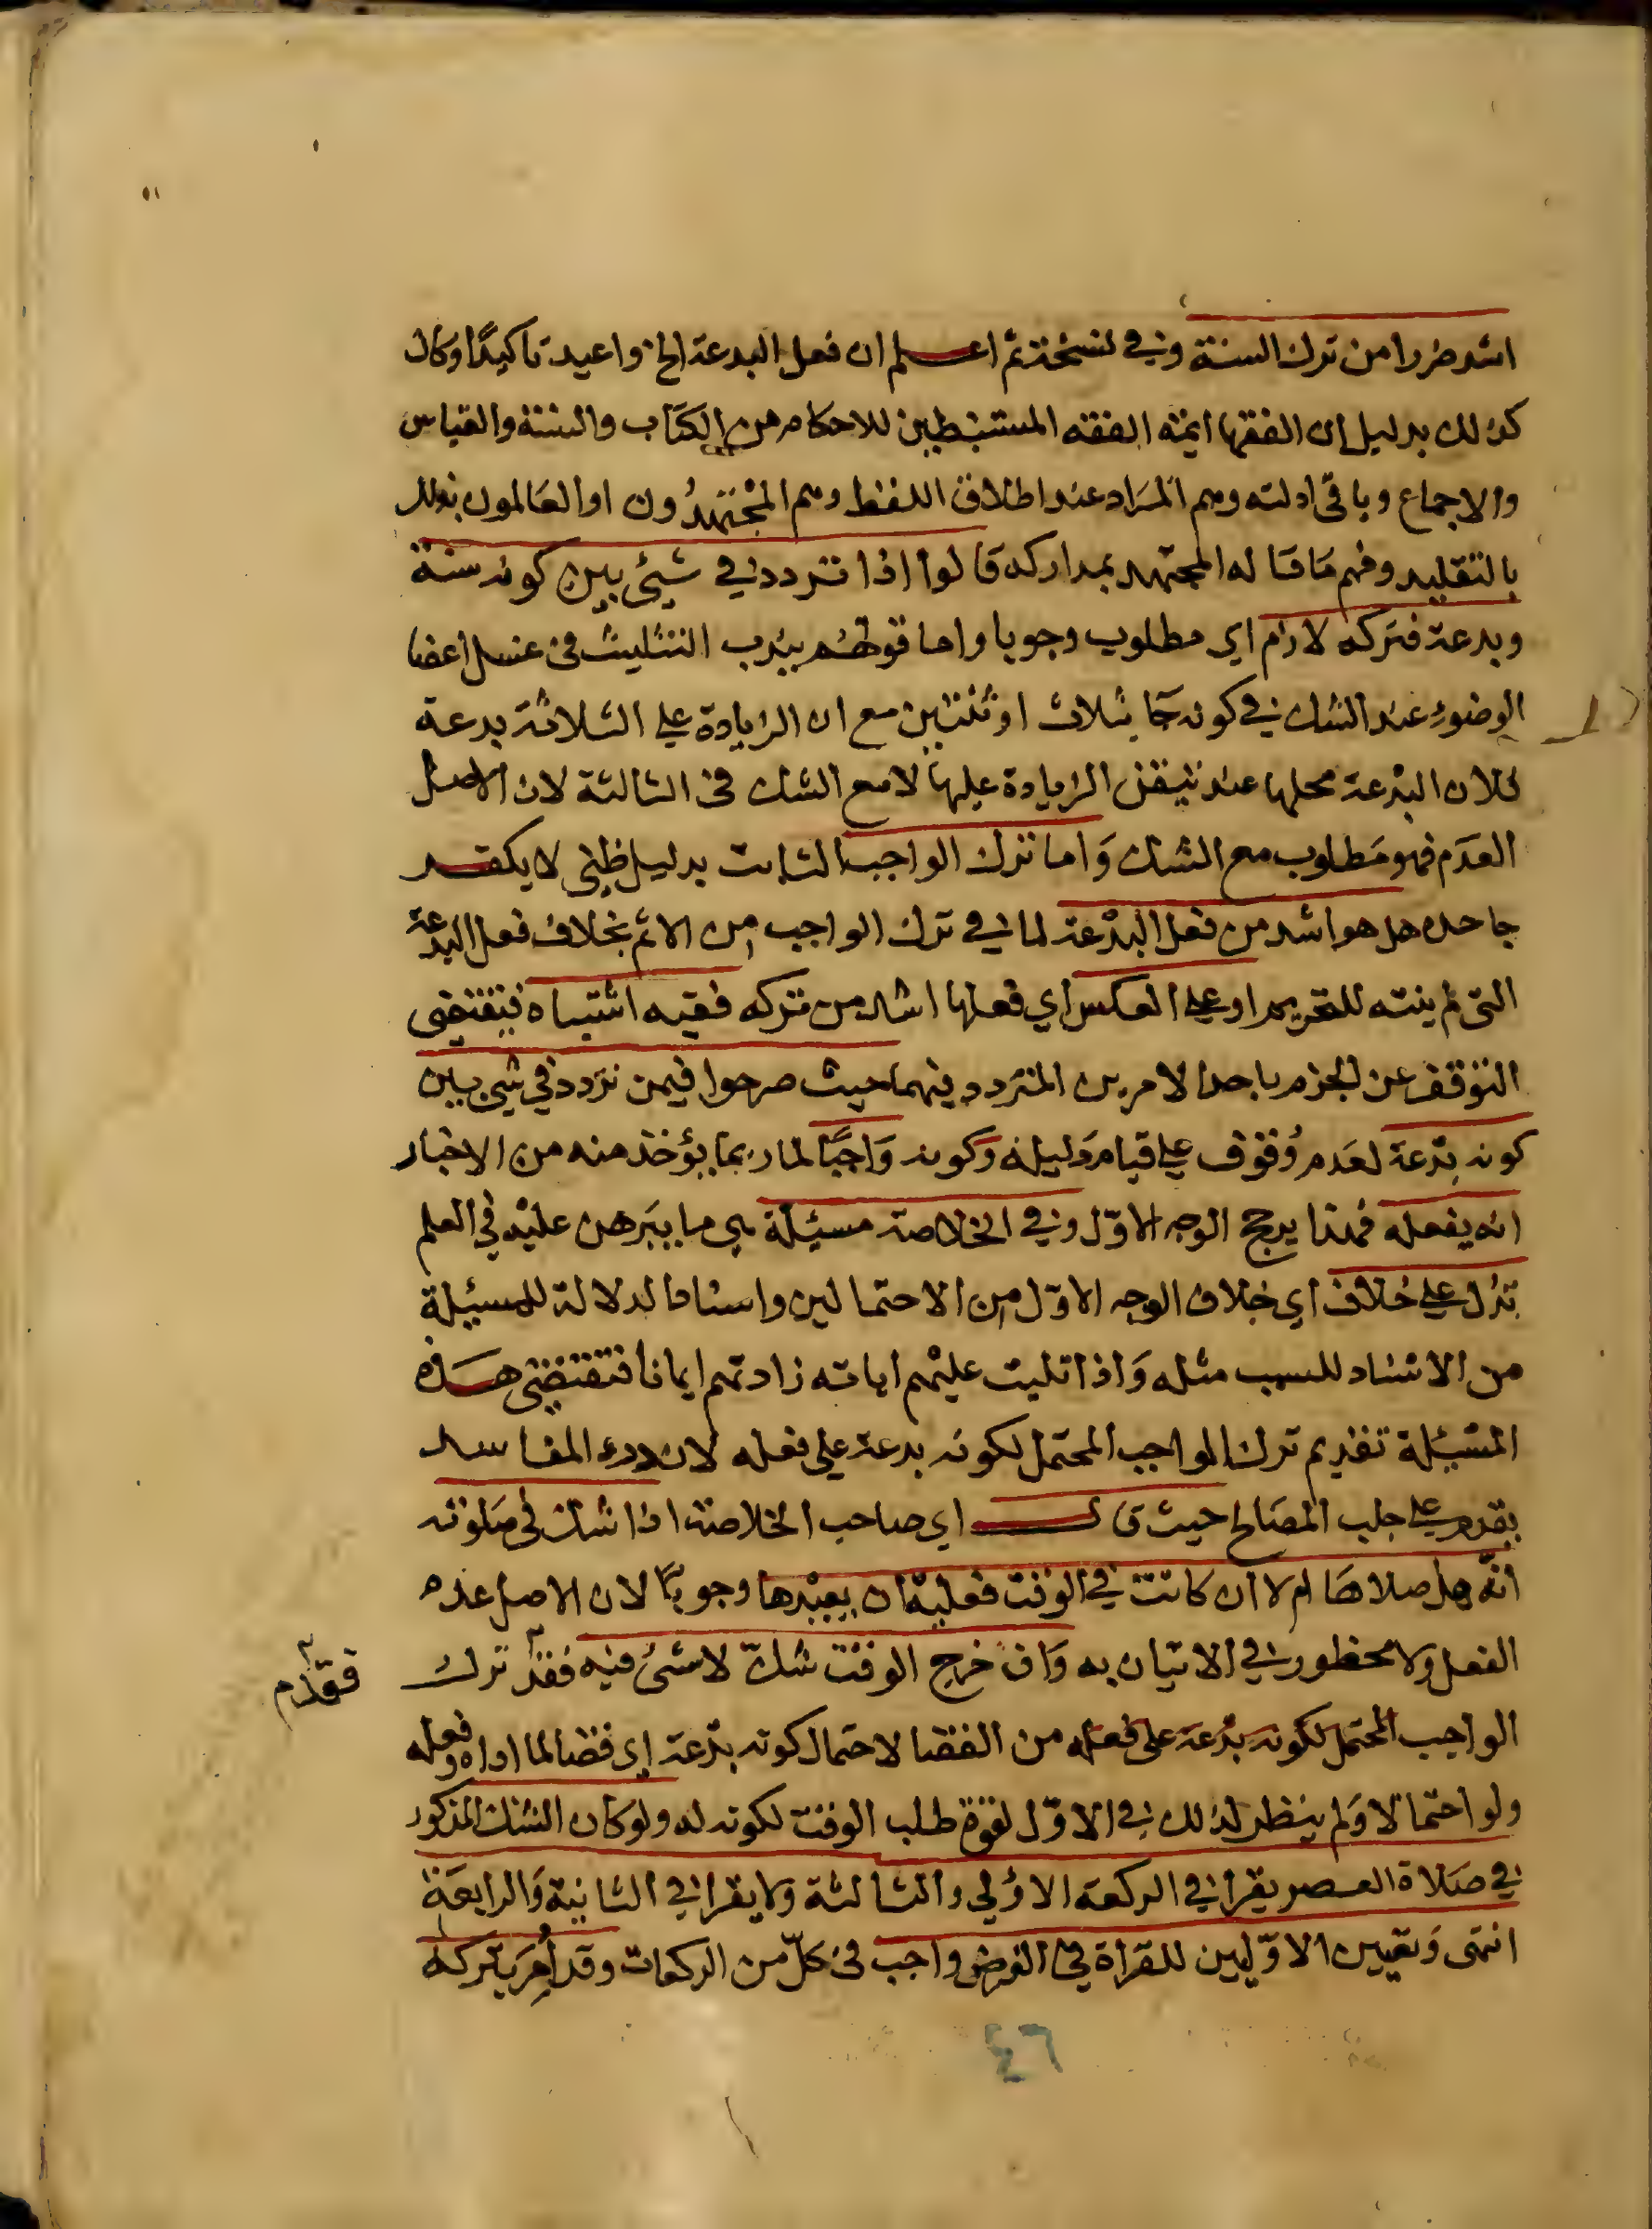 اشد ضررا من ترك السنة وفي نسخة ثم اعلم ان فعل البدعة الخ واعيد تاكيدًا وكان
كذلك بدليل ان الفقها ايمة الفقه المستنبطين للاحكام من الكتاب والسنة والقياس
والاجماع وباقى ادلته وهم المراد عند اطلاق اللفظ وهم المجتهدُون او العَالمون بذلك
بالتقليد وفهم مَا قَاله المجتهد بمداركه قَالوا اذا تردد في شيئ بين كونه سنة
وبدعة فتركه لازم اي مطلوب وجوبا واما قولهم بندب التثليث في غسل اعضا
الوضوءِ عند الشك في كونه جَا بثلاث او ثنتين مع ان الزيادة علي الثلاثة بدعة
فلان البدعة محلها عند تيقن الزيادة عليها لا مع الشك في الثالثة لان الاصل
العدَم فهو مَطلوب مع الشك وَاما ترك الواجب الثابت بدليل ظني لا يكفر
جاحده هل هو اشد من فعل البدْعة لما في ترك الواجب من الاثم بخلاف فعل البدعة
التي لم ينته للتحريم او علي العكس اي فعلها اشد من تركه ففيه اشتباه فيقتضي
التوقف عن الجزم باحد الامرين المتردد فيهما حيث صرحوا فيمن تردد في شيئ بين
كونه بدْعة لعَدم وُقوف علي قيام دَليله وَكونه وَاجبًا لما ربما يؤخذ منه من الاخبار
انه يفعله فهذا يرجح الوجه الاوّل وفي الخلاصة مسئلة هي ما يبَرهن عليْه في العلم
تدُل علي خلاف اي خلاف الوجه الاوّل من الاحتمالين واسناد الدلالة للمسئلة
من الاسناد للسبب مثله وَاذا تليت عليْهم اياته زادتهم ايمانا فتقتضي هذه
المسْئلة تقديم ترك الواجب المحتمل لكونه بدعة علي فعله لان درء المفاسد
يقدم علي جلب المصَالح حيث قال اي صاحب الخلاصة اذا شك في صَلوته
انّه هل صلاهَا ام لا ان كانت في الوقت فعليْه ان يعيْدها وجوبًا لان الاصل عدم
الفعل ولا محظور في الاتيان به وَان خرج الوقت شكّ لا شئ فيه فقد ترك
فقدّم
الواجب المحتمل لكونه بدْعة على فعله من القضا لاحتمال كونه بدْعة اي قضا لما اداه وفعله
ولو احتمالا وَلم ينظر لذلك في الاوّل لقوة طلب الوقت لكونه له ولو كان الشك المذكور
في صَلاة العصر يقرا في الركعة الاوُلي والثالثة ولا يقرا في الثانية وَالرابعَة
انتهى وَتعيين الاوّليين للقراة في الفرض واجب في كلّ من الركعات وقد اُمِرَ بتركه
٤٦